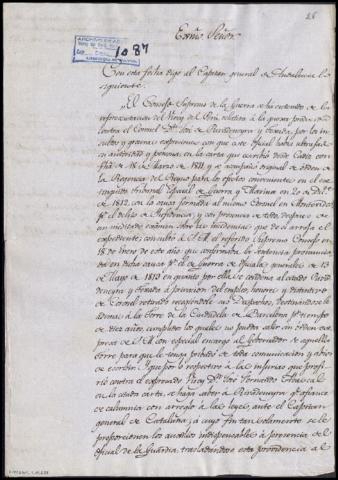 26
1087
Exmo. Señor
Con esta fecha digo al Capitan general de Andalucía lo
siguiente.
"El Consejo Supremo de la Guerra se ha enterado de la
representacion del Virey de Perú relativa a la queja producida
contra el Coronel Dn. José de Rivadeneyra y Texada, por los in-
sultos y graves expresiones con que este oficial había ultrajado
su autoridad y persona en la carta que escribió desde Cadiz con
fha. de 18 de Marzo de 1811, y se acompañó original de orden de
la Regencia del Reyno para los efectos convenientes en el ex-
tinguido tribunal especial de Guerra y Marina en 20 de
de 1812, con la causa formada al mismo Coronel en Montevideo
pr. el delito de Infidencia; y con presencia de todo despues de
un meditado exámen sobre las incidencias que de sí arroja el
expediente; consultó á S.M. el referido Supremo Consejo en
18 de Enero de este año que confirmaba la sentencia pronuncia-
da en dicha causa pr. el de Guerra de oficiales generales de 13
de Mayo de 1813 en quanto por ella se condena al citado Rivade-
neyra y Texada á privacion del empleo, honores y distintivo
de Coronel retirado recogiendole sus Despachos, destinandosele
ademas á la torre de la Ciudadela de Barcelona pr. tiempo
de diez años, cumplidos los quales no pueda salir sin orden ex-
presa de S.M. con especial encargo al Gobernador de aquella
torre para que le tenga privado de toda comunicacion y arbitrio
de escribir: "que por lo respectivo á las injurias que profi-
rió contra el expresado Virey Dn. José Fernando Abascal
en la citada carta, se haga saber á Rivadeneyra que afiance
de calumnia con arreglo á las leyes, ante el Capitan
general de Cataluña; á cuyo fin tan solamente se le
proporcionen los auxilios indispensables á presencia del
oficial de la Guardia, trasladandose esta providencia al